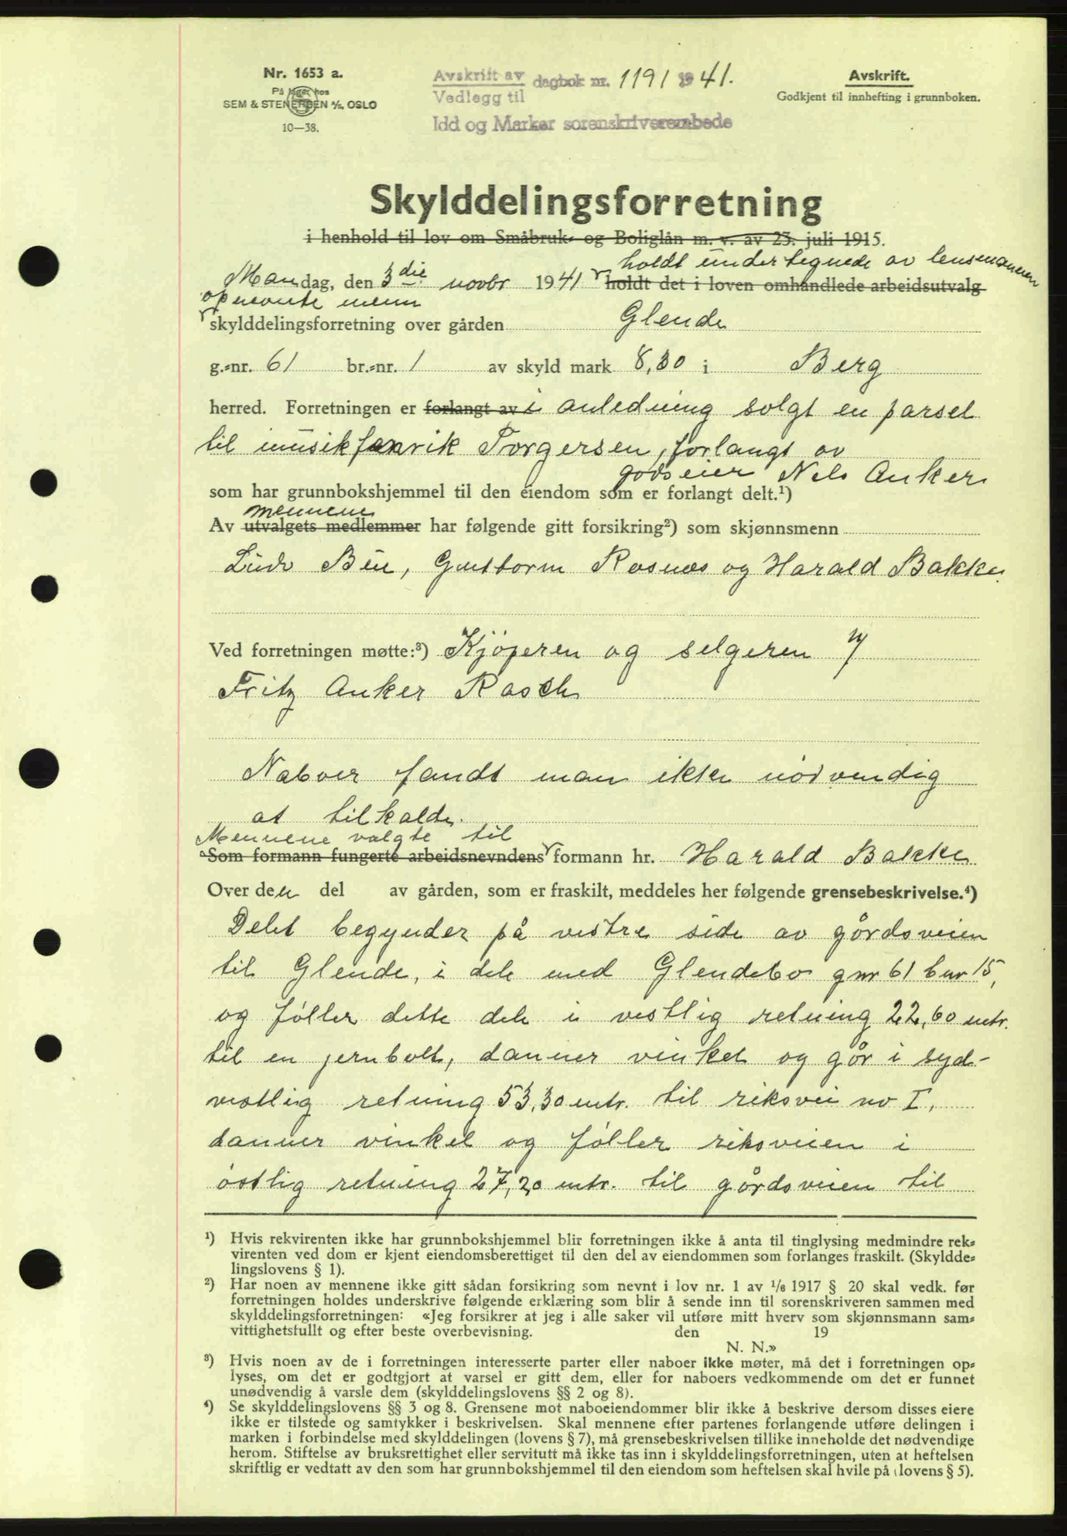 Nr. 1653 a.
På lager hos
SEM & STENERSEN A/S, OSLO
10—38.
Avskrift av dagbok nr. 1191 1941.
Vedlegg til
Idd og Marker sorenskriverembede
Avskrift.
Godkjent til innhefting i grunnboken.
Skylddelingsforretning
i henhold til lov om Småbruk- og Boliglån m. v. av 23. juli 1915.
holdt undertegnede av lensmannen
Mandag, den 3die novbr 1941 holdt det i loven omhandlede arbeidsutvalg
opnevnte menn
skylddelingsforretning over gården Glende
g.-nr. 61 br.-nr. 1 av skyld mark 8,30 i Berg
herred. Forretningen er forlangt av i anledning solgt en parsel
til musikfenrik Torgersen, forlangt av
godseier Nils Anker
som har grunnbokshjemmel til den eiendom som er forlangt delt.¹)
mennene
Av utvalgets medlemmer har følgende gitt forsikring²) som skjønnsmenn
Ludv Bøe, Guttorm Rosnæs og Harald Bakke
Ved forretningen møtte:³) Kjøperen og selgeren v/
Fritz Anker Rasch
Naboer fandt man ikke nødvendig
at tilkalde.
Mennene valgte til
Som formann fungerte arbeidsnevndens formann hr. Harald Bakke
Over den del av gården, som er fraskilt, meddeles her følgende grensebeskrivelse.⁴)
Delet begynder på vestre side av gårdsveien
til Glende, i dele med Glendebo gnr 61 bnr 15,
og føller dette dele i vestlig retning 22,60 mtr.
til en jernbolt, danner vinkel og går i syd-
vestlig retning 53,30 mtr. til riksvei no I,
danner vinkel og føller riksveien i
østlig retning 27,20 mtr. til gårdsveien til
¹) Hvis rekvirenten ikke har grunnbokshjemmel blir forretningen ikke å anta til tinglysing medmindre rek-
virenten ved dom er kjent eiendomsberettiget til den del av eiendommen som forlanges fraskilt. (Skyldde-
lingslovens § 1).
²) Har noen av mennene ikke gitt sådan forsikring som nevnt i lov nr. 1 av 1/6 1917 § 20 skal vedk. før
forretningen holdes underskrive følgende erklæring som blir å sende inn til sorenskriveren sammen med
skylddelingsforretningen: «Jeg forsikrer at jeg i alle saker vil utføre mitt hverv som skjønnsmann sam-
vittighetsfullt og efter beste overbevisning. den 19
N. N.»
³) Hvis noen av de i forretningen interesserte parter eller naboer ikke møter, må det i forretningen op-
lyses, om det er godtgjort at varsel er gitt dem, eller for naboers vedkommende om det er funnet
unødvendig å varsle dem (skylddelingslovens §§ 2 og 8).
⁴) Se skylddelingslovens §§ 3 og 8. Grensene mot naboeiendommer blir ikke å beskrive dersom disses eiere
ikke er tilstede og samtykker i beskrivelsen. Skal mennene efter partenes forlangende utføre delingen i
marken i forbindelse med skylddelingen (lovens § 7), må grensebeskrivelsen tillike inneholde det nødvendige
herom. Stiftelse av bruksrettighet eller servitutt må ikke tas inn i skylddelingsforretningen, uten at heftelsen
skriftlig er vedtatt av den som har grunnbokshjemmel til den eiendom som heftelsen skal hvile på (lovens § 5).